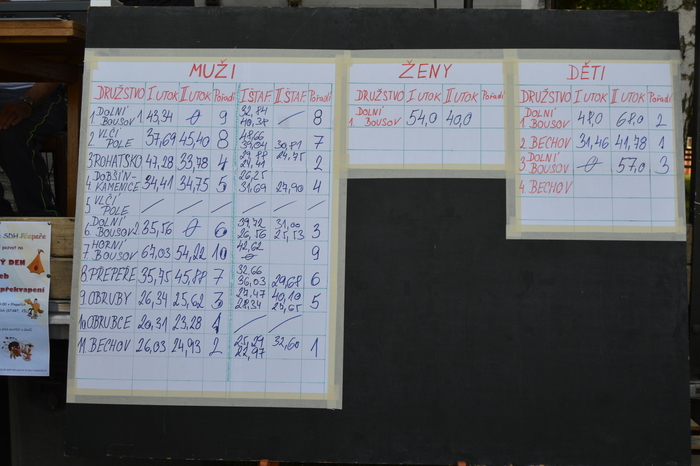 MUŽI
DRUŽSTVO I UTOK II UTOK Pořadí I ŠTAF. II ŠTAF. Pořadí
1 DOLNÍ BOUSOV 43,34 0 9 32,84 40,38 — 8
2. VLČÍ POLE 37,69 45,40 8 48,66 39,04 30,81 7
3 ROHATSKO 47,28 33,78 4 24,75 2
4. DOBŠÍN-KAMENICE 34,41 34,75 5 26,25 31,69 24,90 4
VLČÍ POLE / / / / / /
6. DOLNÍ BOUSOV 2 35,56 0 6 39,72 26,56 31,00 25,53 3
7. HORNÍ BOUSOV 67,03 54,22 10 42,62 0 9
8 PŘEPEŘE 35,75 45,88 7 32,66 36,03 29,68 6
9. OBRUBY 26,34 25,62 3 27,47 28,34 40,10 25,65 5
10. OBRUBCE 20,31 23,28 1 / /
11. BECHOV 26,03 24,93 2 25,29 22,97 32,60 1
ŽENY
DRUŽSTVO I UTOK II UTOK Pořadí
1 DOLNÍ BOUSOV 54,0 40,0
DĚTI
DRUŽSTVO I UTOK II UTOK Pořadí
1 DOLNÍ BOUSOV 48,0 68,0 2
2. BECHOV 31,46 41,78 1
3 DOLNÍ BOUSOV 0 57,0 3
4 BECHOV
SDH
pozvat na
Ý DEN
eb
překvapení